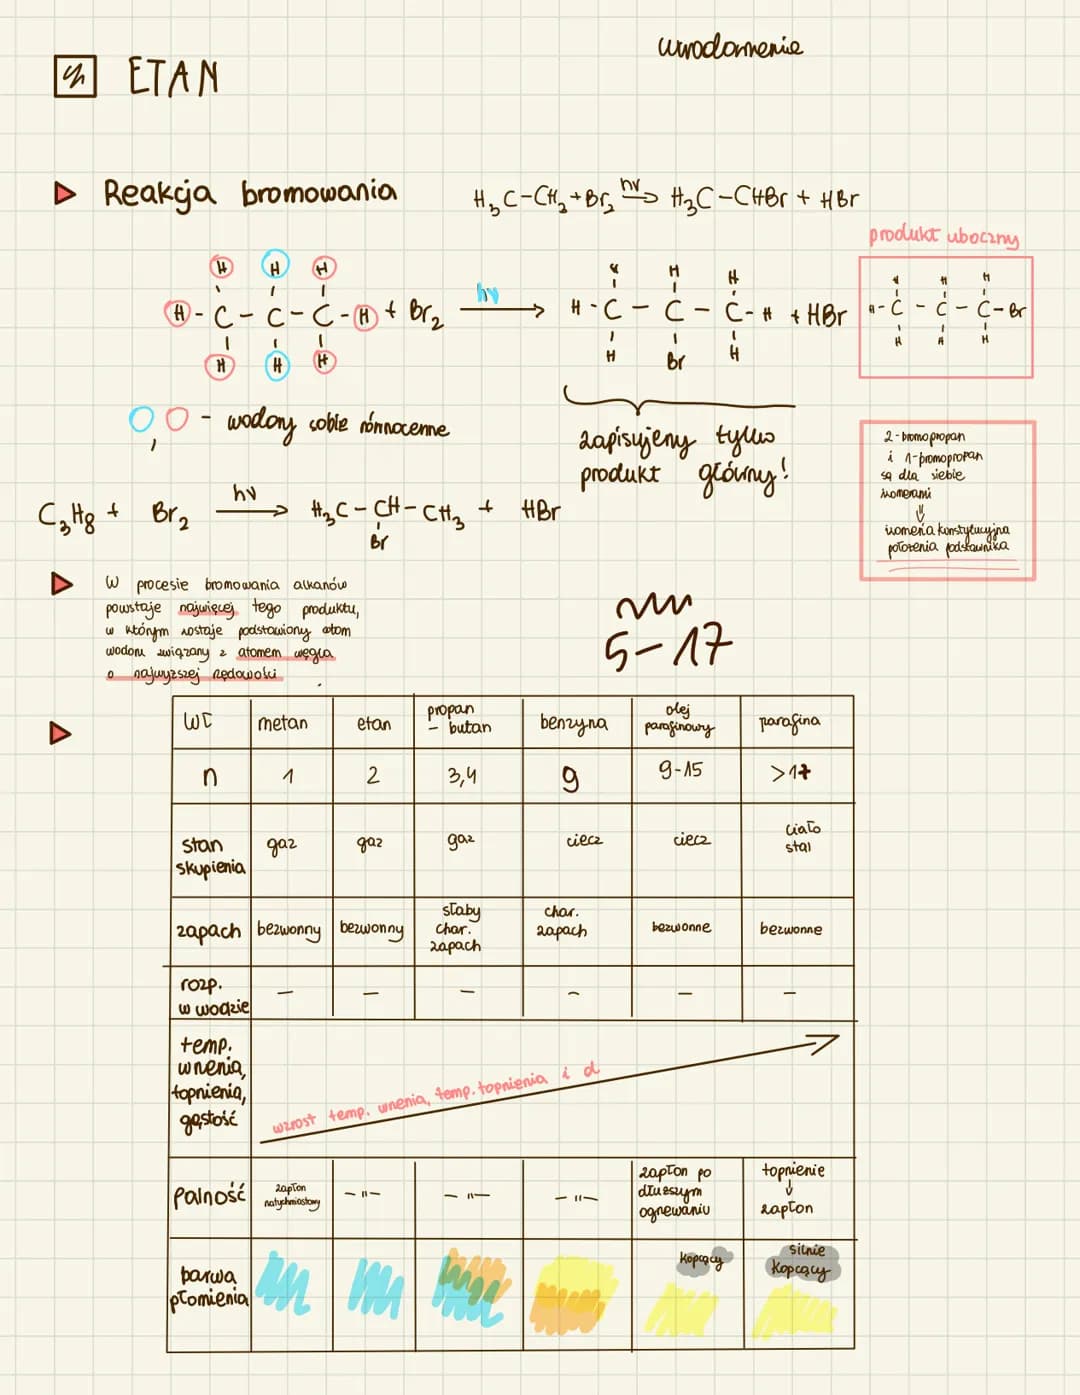 uwodornienie
ETAN
Reakcja bromowania
H₃C-CH₃ + Br₂ hν→ H₃C-CHBr + HBr
produkt uboczny
H H H
H - C - C - C - H + Br₂ hν→
H H H
H H H
H - C - C - C - H + HBr
H Br H
H H H
H - C - C - C - Br
H H H
, - wodory sobie równocenne
zapisujemy tylko
produkt główny!
2-bromopropan
i 1-bromopropan
są dla siebie
izomerami
⇓
izomeria konstytucyjna
położenia podstawnika
C₃H₈ + Br₂ hν→ H₃C - CH - CH₃ + HBr
Br
W procesie bromowania alkanów
powstaje najwięcej tego produktu,
w którym zostaje podstawiony atom
wodoru związany z atomem węgla
o najwyższej rzędowości
5-17
WC metan etan propan - butan benzyna olej parafinowy parafina
n 1 2 3,4 9 9-15 >17
stan skupienia gaz gaz gaz ciecz ciecz ciało stał
zapach bezwonny bezwonny słaby char. zapach char. zapach bezwonne bezwonne
rozp. w wodzie - - - - - -
temp. wrzenia, topnienia, gęstość wzrost temp. wrzenia, temp. topnienia i d
palność zapłon natychmiastowy -"- -"- -"- zapłon po dłuższym ogrzewaniu topnienie ↓ zapłon
barwa płomienia kopcący silnie kopcący